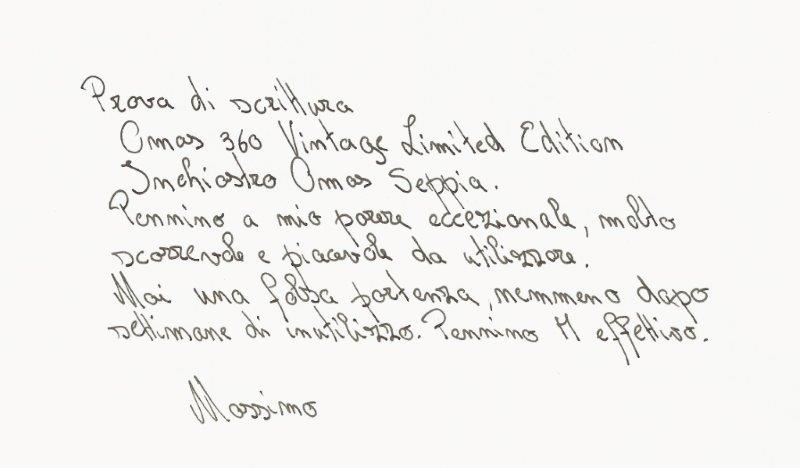 Prova di scrittura
Omas 360 Vintage Limited Edition
Inchiostro Omas Seppia.
Pennino a mio parere eccezionale, molto
scorrevole e piacevole da utilizzare.
Mai una falsa partenza, nemmeno dopo
settimane di inutilizzo. Pennino M effettivo.
Massimo